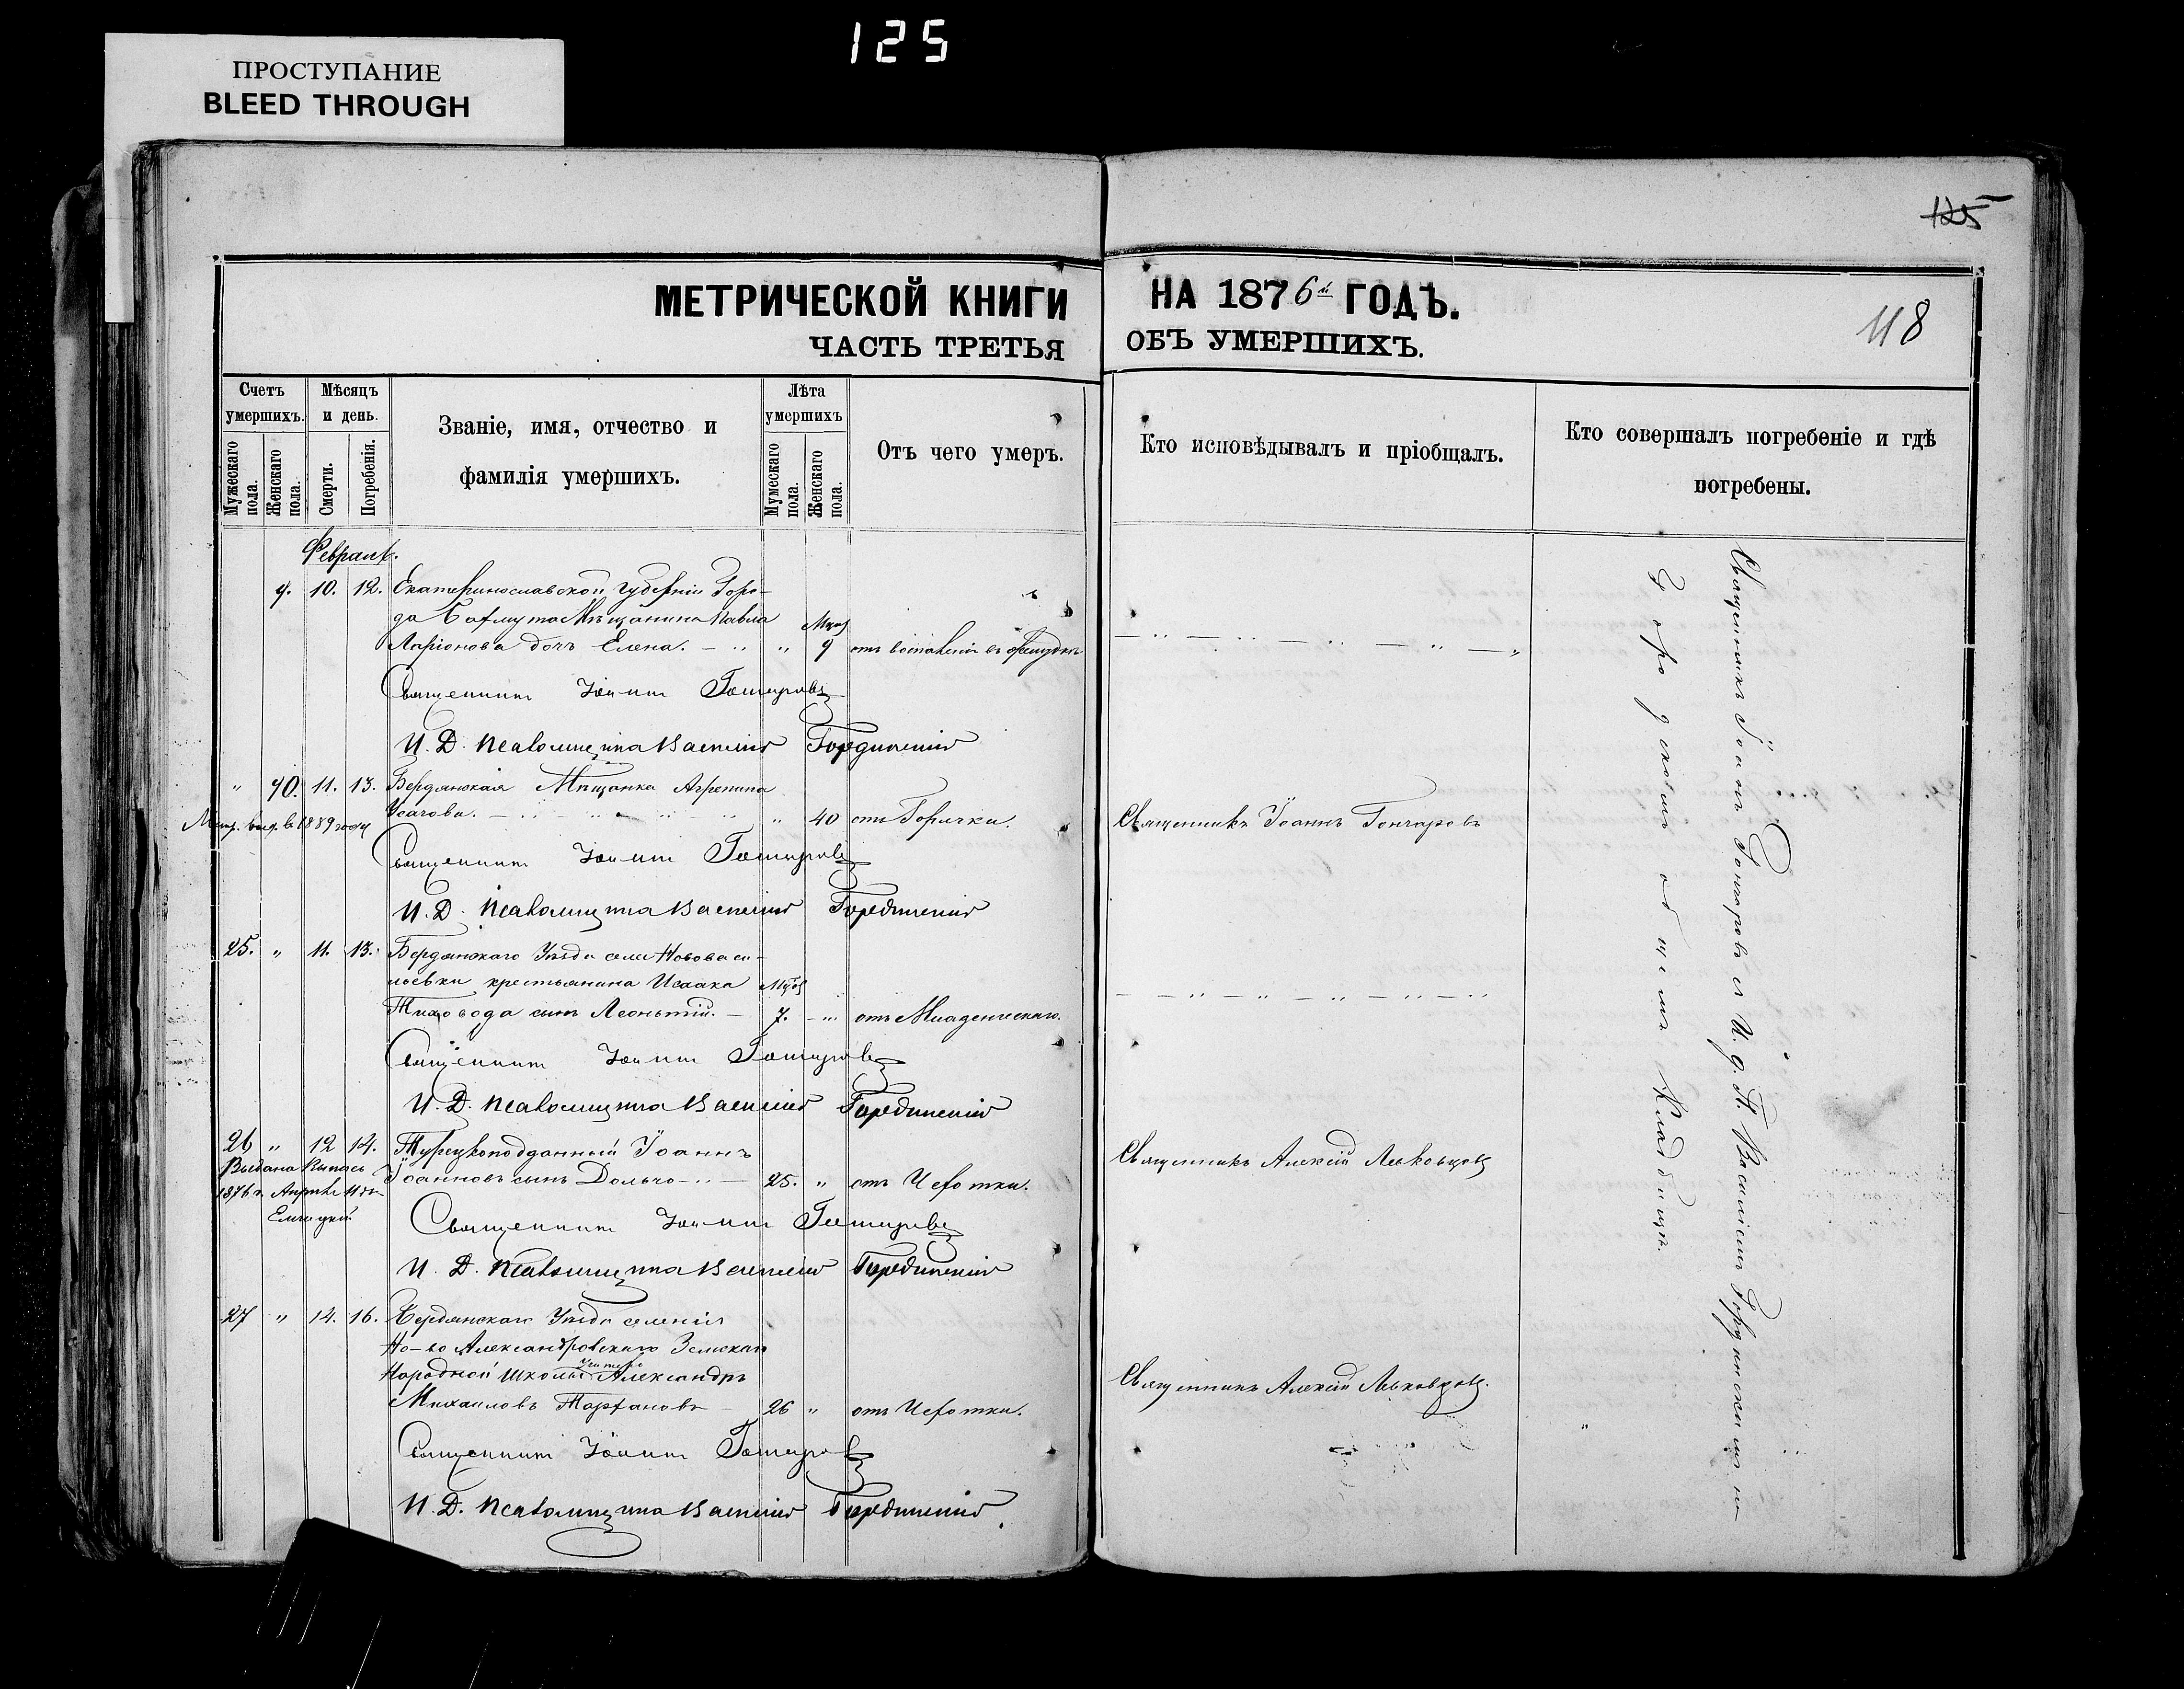 125
ПРОСТУПАНИЕ
BLEED THROUGH
125
МЕТРИЧЕСКОЙ КНИГИ НА 1876й ГОДЪ.
118
ЧАСТЬ ТРЕТЬЯ ОБЪ УМЕРШИХЪ.
Счетъ умершихъ.
Мужескаго пола.
Женскаго пола.
Мѣсяцъ и день.
Смерти.
Погребенія.
Званіе, имя, отчество и фамилія умершихъ.
Лѣта умершихъ
Мужескаго пола.
Женскаго пола.
Отъ чего умеръ.
Кто исповѣдывалъ и пріобщалъ.
Кто совершалъ погребеніе и гдѣ погребены.
Февраль.
9. 10. 12. Екатеринославской губерніи Горо-
да Бахмута Мѣщанина Павла
Ларіонова дочь Елена. — " " 9 отъ
Священникъ Іоаннъ Гончаровъ
И. Д. Псаломщика Василій
" 10. 11. 13. Бердянская Мѣщанка Агрепина
Усачова. " 40 отъ Горячки. Священникъ Іоаннъ Гончаровъ
выд. в 1889 году
Священникъ Іоаннъ Гончаровъ
И. Д. Псаломщика Василій
25. " 11. 13. Бердянскаго Уѣзда села Нововаси-
льевки крестьянина Исаака
сынъ Леонтій. — 7. — " отъ Младенческаго.
Священникъ Іоаннъ Гончаровъ
И. Д. Псаломщика Василій
26 " 12 14. Турецкоподданный Іоаннъ
Іоанновъ сынъ — 25. " отъ Чехотки. Священникъ Алексій
Выдана
1876 г. Апрѣля 11 дн.
Священникъ Іоаннъ Гончаровъ
И. Д. Псаломщика Василій
27 " 14. 16. Бердянскаго Уѣзда селенія
Но-во Александровскаго Земской
Народной Школы учитель Александръ
Михаиловъ — 26 " отъ Чехотки. Священникъ Алексій
Священникъ Іоаннъ Гончаровъ
И. Д. Псаломщика Василій
Священникъ Іоаннъ Гончаровъ съ И. д. П. Василіемъ на
Городскомъ общемъ Кладбищѣ.